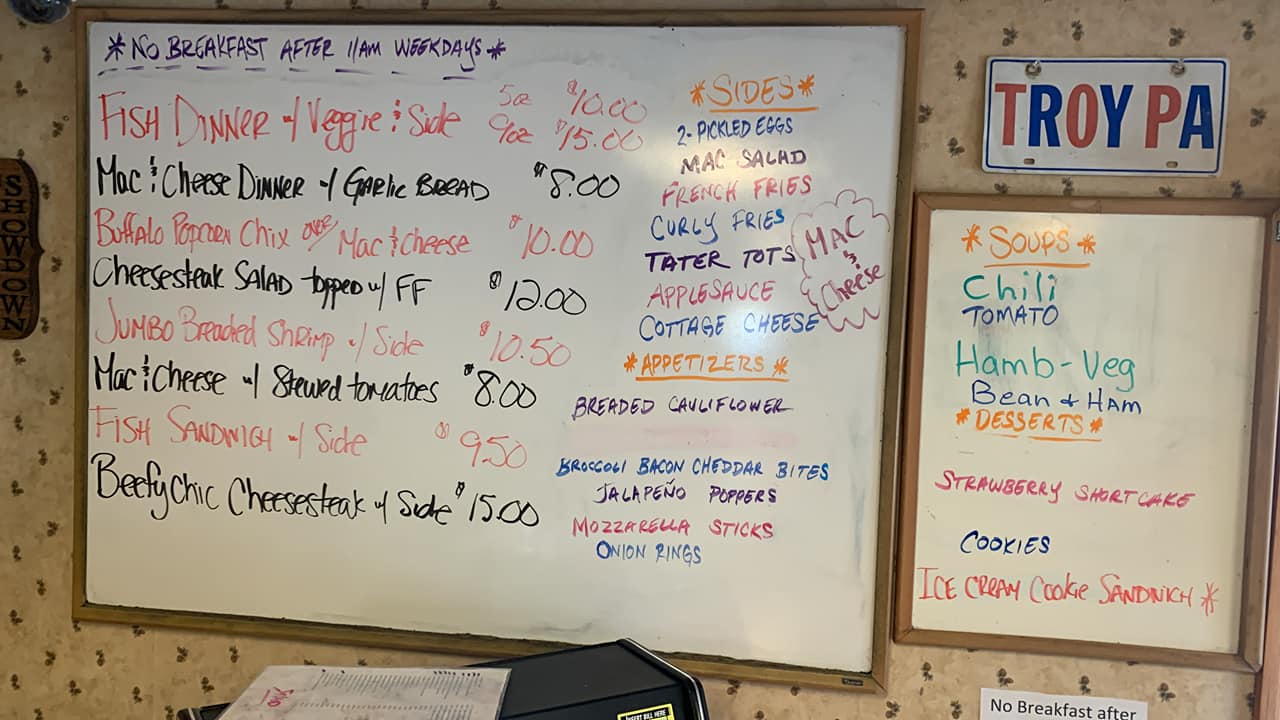 *NO BREAKFAST AFTER 11AM WEEKDAYS*
FISH DINNER w/ Veggie & Side 5oz $10.00
9oz $15.00
Mac & Cheese DINNER w/ GARlic BREAD $8.00
Buffalo Popcorn Chix over Mac & Cheese $10.00
Cheesesteak SALAD topped w/ FF $12.00
JUMBO Breaded Shrimp w/ Side $10.50
Mac & Cheese w/ Stewed tomatoes $8.00
FISH SANDWICH w/ Side $9.50
Beefy Chic Cheesesteak w/ Side $15.00
*SIDES*
2-PICKLED EGGS
MAC SALAD
FRENCH FRIES
CURLY FRIES
TATER TOTS
APPLESAUCE
COTTAGE CHEESE
MAC
&
Cheese
*APPETIZERS*
BREADED CAULIFLOWER
BROCCOLI BACON CHEDDAR BITES
JALAPEÑO POPPERS
MOZZARELLA STICKS
ONION RINGS
TROY PA
*SOUPS*
Chili
TOMATO
Hamb-Veg
Bean & HAM
*DESSERTS*
STRAWBERRY SHORTCAKE
COOKIES
ICE CREAM Cookie SANDWICH *
SHOWDOWN
INSERT BILL HERE
No Breakfast after